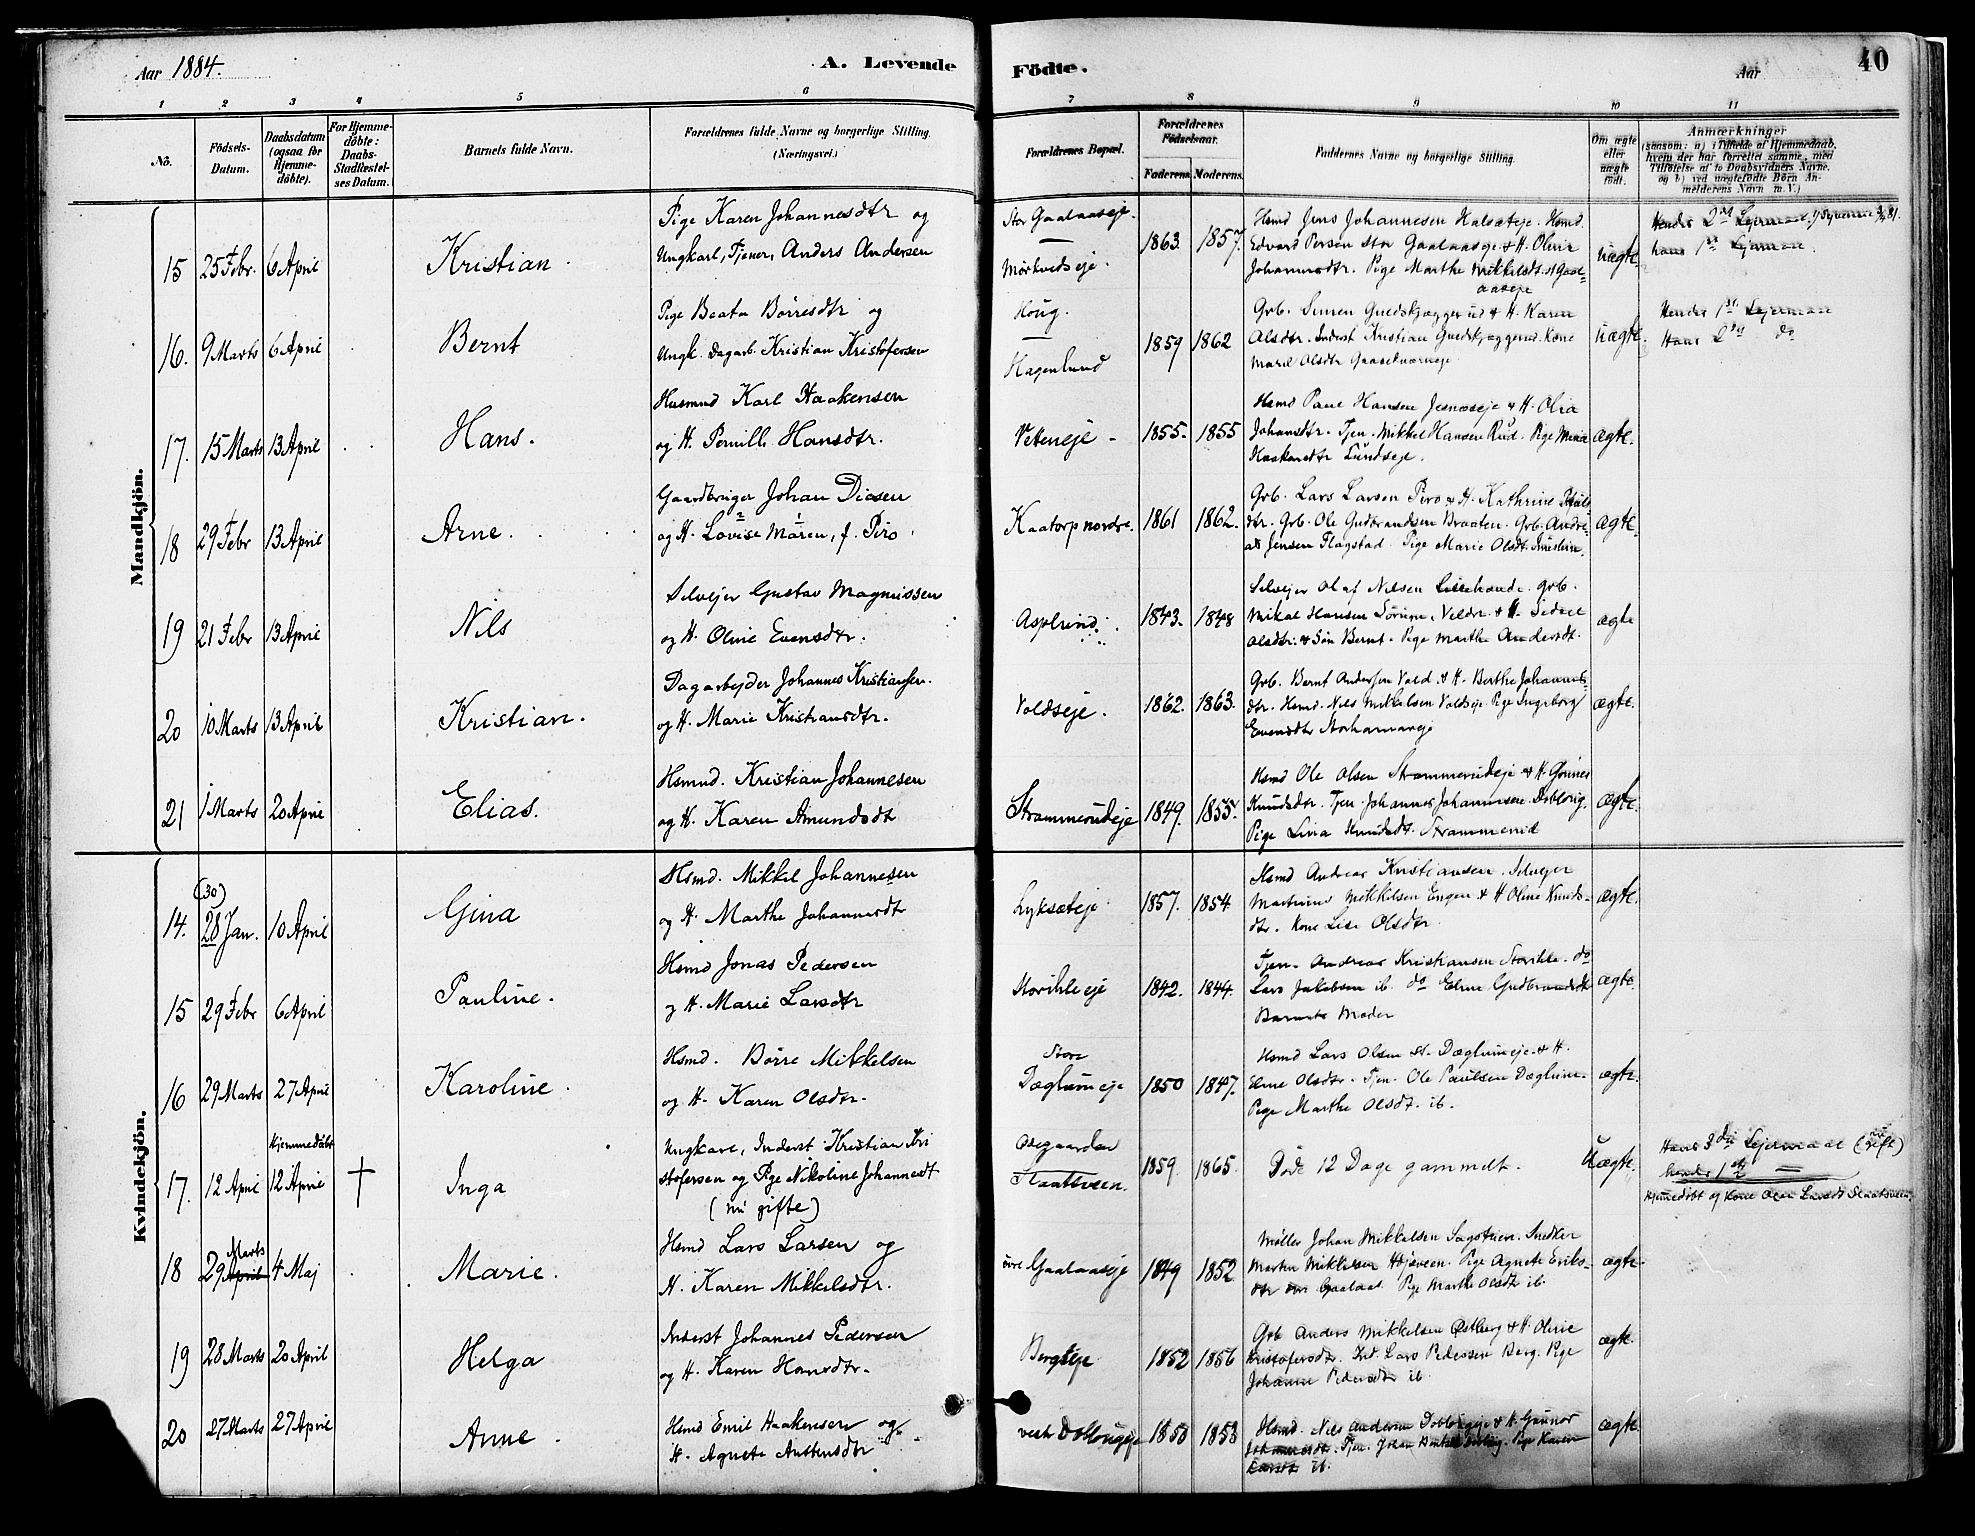 Aar 1884.
A. Levende
Födte.
Aar
40
1 2 3 4 5 6 7 8 9 10 11
No.
Födsels-Datum.
Daabsdatum (ogsaa for Hjemme-döbte).
For Hjemme-döbte: Daabs-Stadfæstel-ses Datum.
Barnets fulde Navn.
Forældrenes fulde Navne og borgerlige Stilling. (Næringsvei.)
Forældrenes Bopæl.
Forældrenes Födselsaar.
Faderens. Moderens.
Faddernes Navne og borgerlige Stilling.
Om ægte eller uægte født.
Anmærkninger
(saasom: a) i Tilfælde af Hjemmedaab, hvem der har forrettet samme, med Tilföielse af to Daabsvidners Navne, og b) ved uægtefødte Börn An-melderens Navn m. V.)
Mandkjön.
Pige Karen Johannesdtr og
Ungkarl, Tjener, Anders Andersen
15 25 Febr. 6 April Kristian.
Stor Gaalaaseje.
Mørkvedseje.
1863. 1857.
Hsmd Jens Johannesen Halsateje. Hsmd.
Edvard Persen Stor Gaalaaseje & H. Olivie
Johannesdtr. Pige Marthe Mikkelsdt. st Gaal=
aaseje
uægte.
Hendes 2det Lejermaal
hans 1ste Lejermaal.
Pige Beate Börresdtr og
Ungk. Dagarb. Kristian Kristofersen
16. 9 Marts 6 April Bernt
Houg.
Hagenlund
1859 1862
Grb. Simen Gredskjæggerud & H. Karen
Olsdtr. Inderst Kristian Kone
Marit Olsdtr
uægte.
Hendes 1ste Lejermaal
Hans 2det do
Husmnd Karl Haakensen
og H. Pernille Hansdtr.
17. 15 Marts 13 April Hans.
Veteneje
1855. 1855
Hsmd Paul Hansen Jesnæseje & H. Olia
Johansdtr. Tjen. Mikkel Hansen Rud. Pige Maria
Haakensdtr Lundseje.
ægte.
Gaardbruger Johan Disen
og H. Lovise Maren, f. Piro
18 29 Febr 13 April Arne.
Kaatorp nordre.
1861 1862.
Grb. Lars Larsen Piro & H. Kathrine
dtr. Grb. Ole Gudbrandsen Braaten. Grb. Andre-
as Jensen Flagstad. Pige Marie Olsdt.
ægte.
Selvejer Gustav Magnussen
og H. Oline Evensdtr.
19 21 Febr 13 April Nils
Asplund.
1843. 1848
Selvejer Olaf Nilsen Lillehande. Grb.
Mikal Hansen Veldre & H.
Olsdtr. & Søn Bernt. Pige Marthe Andersdt.
ægte
Dagarbejder Johannes Kristiansen.
og H. Marie Kristiansdtr.
20 10 Marts 13 April Kristian.
Voldseje.
1862. 1863.
Grb. Bernt Andersen Vold & H. Berthe Johannes-
dtr. Hsmd. Nils Mikkelsen Voldseje. Pige Ingeborg
Evensdtr Storhamareje
ægte.
Hsmnd. Kristian Johannesen
og H. Karen Amundsdt
21 1 Marts 20 April Elias.
Strammerudeje
1849. 1855.
Hsmd Ole Olsen Strammerudeje & H.
Knudsdtr. Tjen. Johannes Johannesen Doblong.
Pige Lina Knudsdt. Strammerud
ægte.
Kvindekjön.
Hsmd. Mikkel Johannesen
og H. Marthe Johannesdt
14. (30) 28 Jan. 10 April Gina
Lykseteje
1857. 1854
Hsmd Andreas Kristiansen. Selvejer
Martinus Mikkelsen Engen & H Oline Knuds-
dtr. Kone Lise Olsdtr.
ægte.
Hsmd Jonas Pedersen
og H. Marie Larsdtr
15 29 Febr 6 April Pauline.
Storihleeje
1842. 1844.
Tjen. Andreas Kristiansen Storihle. do
Lars Jakobsen ib. do Eline Gudbrandsdt
Barnets Moder
ægte.
Hsmd. Börre Mikkelsen
og H. Karen Olsdtr.
16 29 Marts 27 April Karoline.
Store
Dæglumeje
1850 1847.
Hsmd Lars Olsen St. Dæglumeje & H.
Eline Olsdtr. Tjen. Ole Paulsen Dæglum.
Pige Marthe Olsdt. ib.
ægte.
Ungkarl, Inderst Kristian Kri
stofersen og Pige Nikoline Johannesdt
(nu gifte)
17. 12 April Hjemmedöbt 12 April † Inga
Osegaarden
Slaatsveen.
1859. 1865.
Døde 12 Dage gammelt.
Uægte.
Hans 3die Lejermaal (nu gift)
hendes 1ste
Hjemmedöbt af Kone Oline Larsdt Slaatsveen.
Hsmd Lars Larsen og
H. Karen Mikkelsdtr.
18 29 Marts April 4 Maj Marie.
övre Gaalaaseje
1849 1852
Møller Johan Mikkelsen Sagstuen. Snedker
Martin Mikkelsen Højsveen. Pige Agnete Eriks-
dtr övre Gaalaas. Pige Marthe Olsdtr ib.
ægte.
Inderst Johannes Pedersen
og H. Karen Hansdtr.
19 28 Marts 20 April Helga
Bergseje
1852 1856
Grb Anders Mikkelsen Østberg & H. Oline
Kristofersdtr. Ind. Lars Pedersen Berg. Pige
Johanne Pedersdtr ib.
ægte.
Hsmd Emil Haakensen og
H. Agnete Anttensdtr
20 27 Marts 27 April Anne.
vestr Doblougeje
1850 1853
Hsmd. Nils Andersen Doblougeje & H. Gunnor
Johannesdtr. Tjen. Johan Doblog. Pige Karen
Larsdt ib.
ægte.